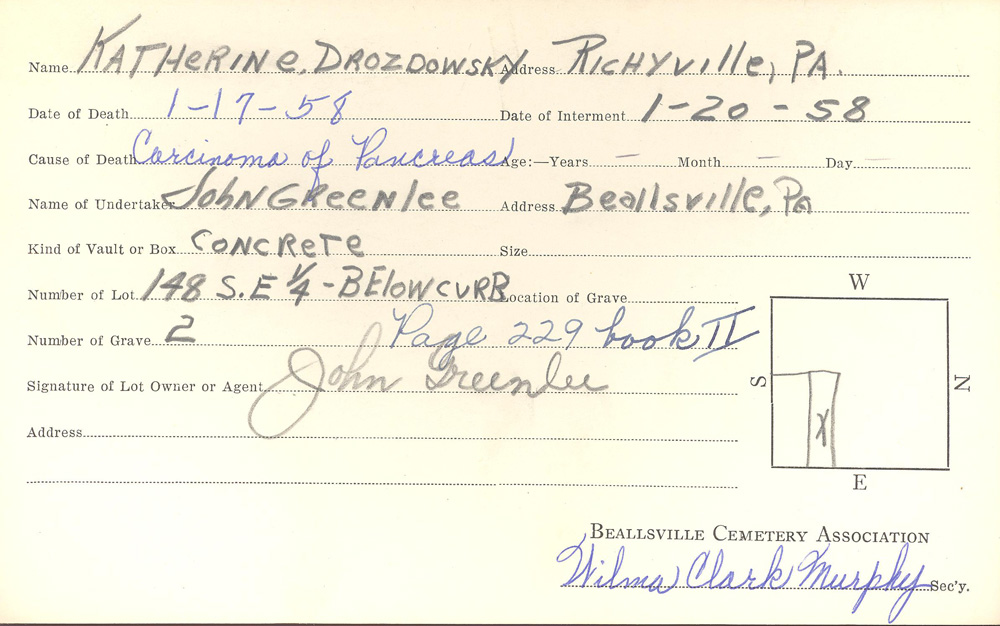 Name KATHERINE DROZDOWSKY Address RICHYVILLE, PA.
Date of Death 1-17-58 Date of Interment 1-20-58
Cause of Death Carcinoma of Pancreas Age:—Years — Month — Day —
Name of Undertaker John Greenlee Address Beallsville, Pa
Kind of Vault or Box CONCRETE Size
Number of Lot 148 S.E 1/4 - BElow CURB Location of Grave
W
Number of Grave 2 Page 229 book II
Signature of Lot Owner or Agent John Greenlee
S N
X
Address
E
BEALLSVILLE CEMETERY ASSOCIATION
Wilma Clark Murphy Sec'y.